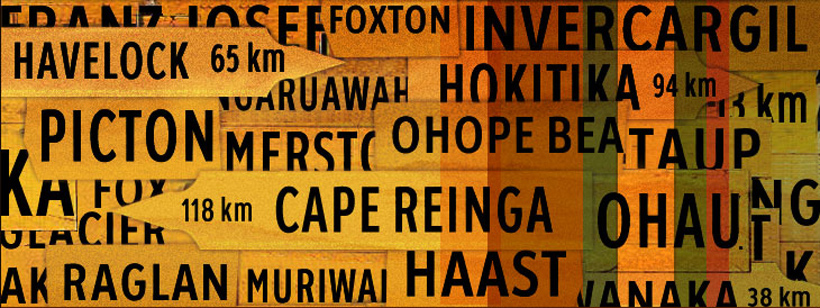 FRANZ JOSEF
FOXTON
INVERCARGIL
HAVELOCK 65 km
HOKITIKA 94 km
NGARUAWAH
km
PICTON
MERSTO
OHOPE BEA
TAUP
KA
FOX
GLACIER
118 km CAPE REINGA
OHAU
NG
AK
RAGLAN
MURIWAI
HAAST
WANAKA
38 km
K